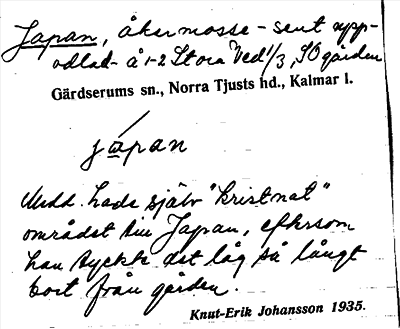 Japan, åkermosse - sent upp-
odlad - å 1-2 Stora Ved 1/3, SO gården
Gärdserums sn., Norra Tjusts hd., Kalmar l.
japan
Medd. hade själv "kristnat"
området till Japan, eftersom
han tyckte det låg så långt
bort från gården.
Knut-Erik Johansson 1935.